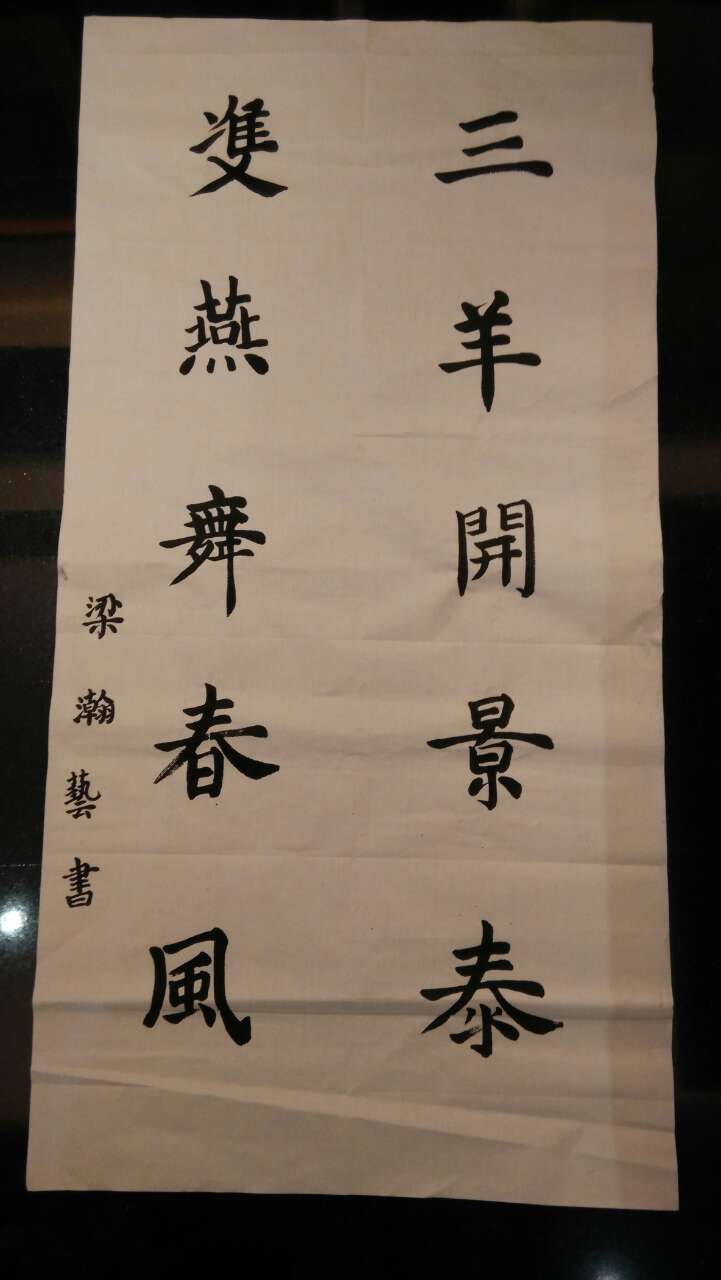 三羊開景泰
雙燕舞春風
梁瀚藝書